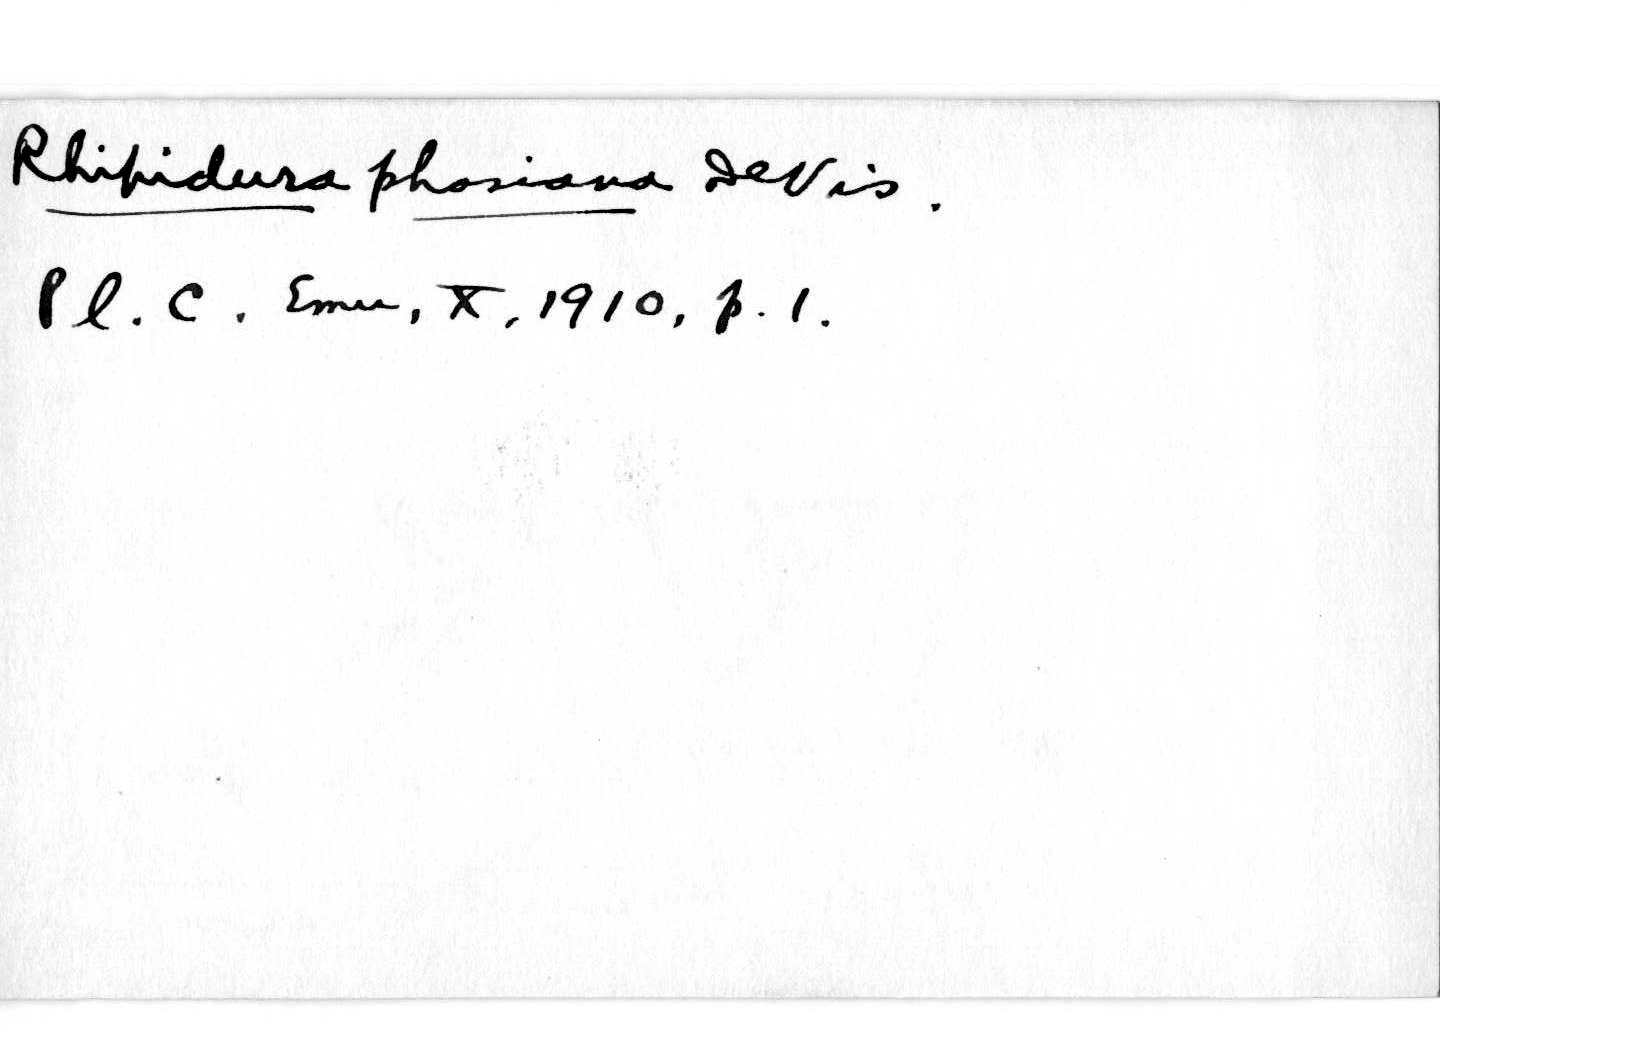 Rhipidura phasiana DeVis.
Pl. C. Emu, X, 1910, p. 1.